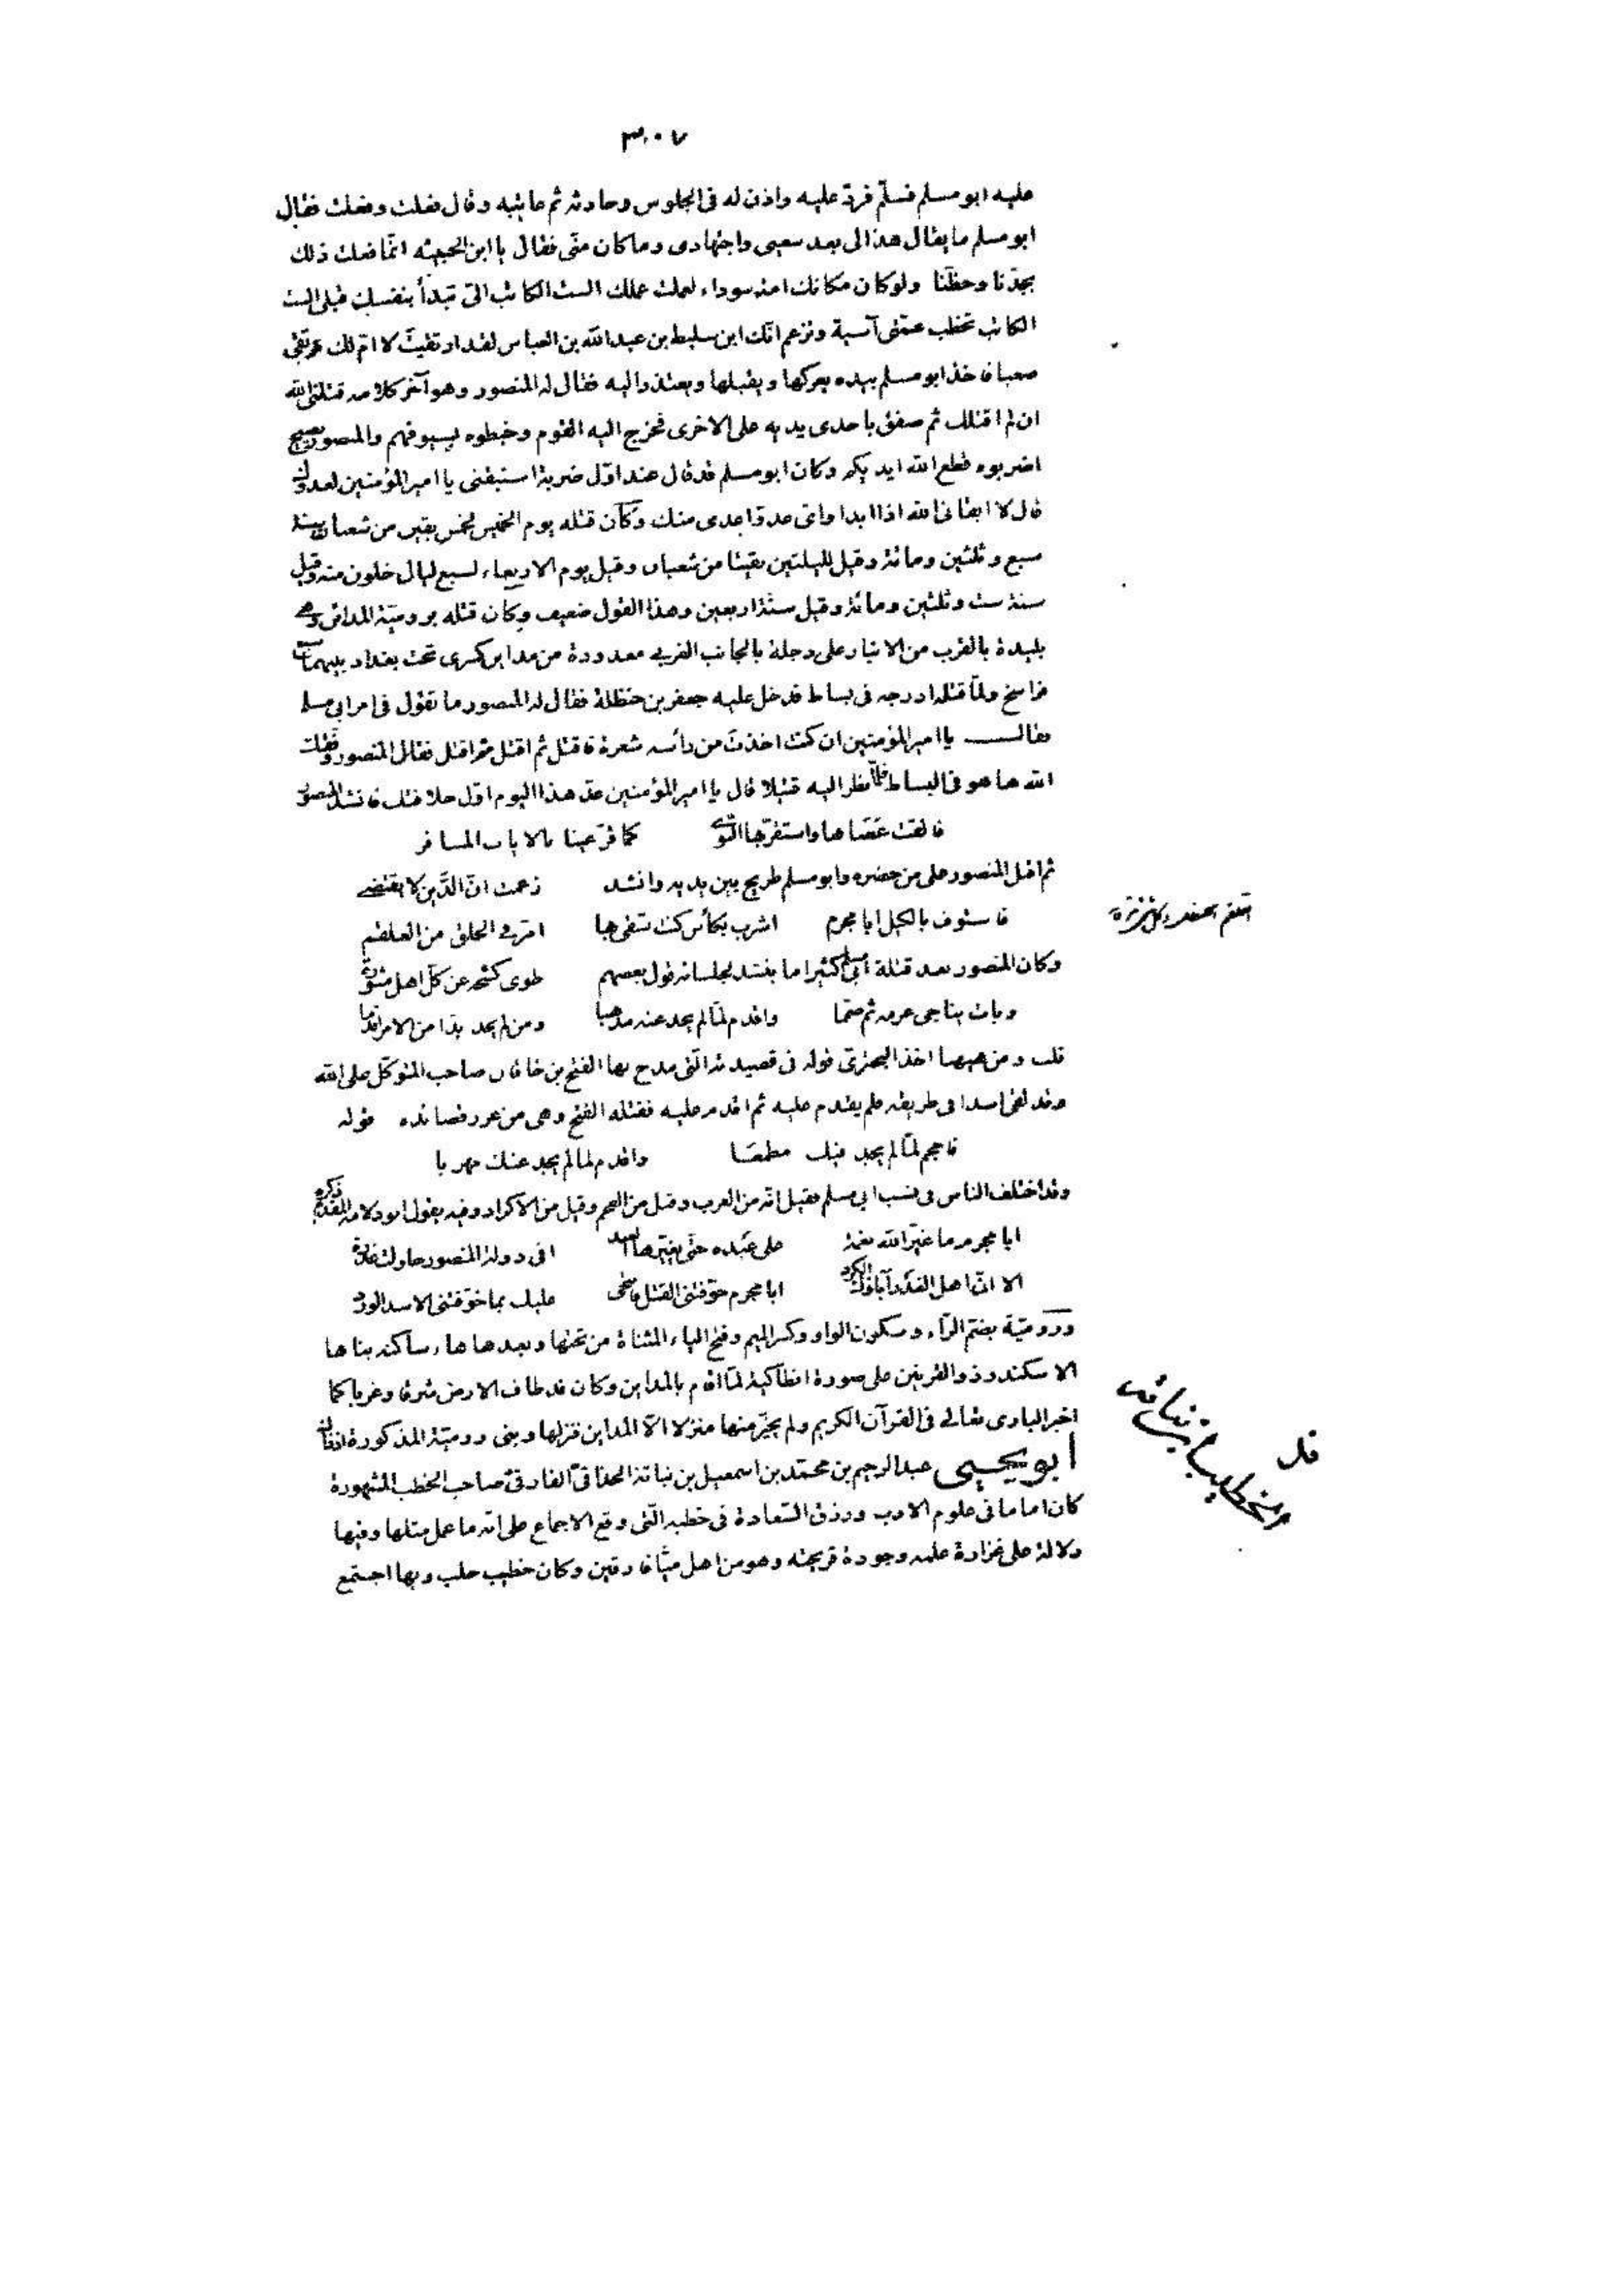 ٣٠٧
عليه ابو مسلم فسلّم فردّ عليه واذن له فى الجلوس وحادثه ثم عاتبه وقال فعلت وفعلت فقال
ابو مسلم ما يقال هذا لى بعد سعيى واجتهادى وما كان منّى فقال يا ابن الخبيثه انّما فعلت ذلك
بجدّنا وحظّنا ولو كان مكانك امة سوداء لعملت عملك الست الكاتب الىّ تبدأ بنفسك قبلى الست
الكاتب تخطب عمّتى آسية وتزعم انّك ابن سليط بن عبد الله بن العباس لقد ارتقيت لا امّ لك مرتقى
صعبا فاخذ ابو مسلم بيده يعركها ويقبلها ويعتذر اليه فقال له المنصور وهو آخر كلامه قتلنى الله
ان لم اقتلك ثم صفق باحدى يديه على الاخرى فخرج اليه القوم وخبطوه بسيوفهم والمنصور يصيح
اضربوه قطع الله ايديكم وكان ابو مسلم قد قال عند اوّل ضربة استبقنى يا امير المؤمنين لعدوك
قال لا ابقانى الله اذا ابدا واىّ عدوّ اعدى منك وكان قتله يوم الخميس لخمس بقين من شعبان سنة
سبع وثلثين ومائة وقيل لليلتين بقيتا من شعبان وقيل يوم الاربعاء لسبع ليال خلون منه وقيل
سنة ست وثلثين ومائة وقيل سنة اربعين وهذا القول ضعيف وكان قتله برومية المدائن وهى
بليدة بالقرب من الانبار على دجلة بالجانب الغربى معدودة من مداين كسرى تحت بغداد بينهما سبعة
فراسخ ولمّا قتله ادرجه فى بساط فدخل عليه جعفر بن حنظلة فقال له المنصور ما تقول فى امر ابى مسلم
فقال يا امير المؤمنين ان كنت اخذت من رأسه شعرة فاقتل ثم اقتل ثم اقتل فقال المنصور وفقك
الله ها هو فى البساط فلمّا نظر اليه قتيلا قال يا امير المؤمنين عدّ هذا اليوم اوّل خلافتك فانشد المنصور
فالقت عصاها واستقرّ بها النوى كما قرّ عينا بالاياب المسافر
ثم اقبل المنصور على من حضره وابو مسلم طريح بين يديه وانشد زعمت انّ الدّين لا يقتضى
فاستوف بالكيل ابا مجرم اشرب بكأس كنت تسقى بها امرّ فى الحلق من العلقم
وكان المنصور بعد قتله ابى مسلم كثيرا ما ينشد لجلسائه قول بعضهم طوى كشحه عن كلّ اهل مشورة
وبات يناجى عزمه ثم صمّما واقدم لمّا لم يجد عنه مذهبا ومن لم يجد بدّا من الامر اقدما
قلت ومن هيهنا اخذ البحترىّ قوله فى قصيدته الّتى مدح بها الفتح بن خاقان صاحب المتوكّل على الله
وقد لقى اسدا فى طريقه فلم يقدم عليه ثم اقدم عليه فقتله الفتح وهى من غرر قصائده قوله
فاحجم لمّا لم يجد فيك مطمعا واقدم لمّا لم يجد عنك مهربا
وقد اختلف الناس فى نسب ابى مسلم فقيل انّه من العرب وقيل من العجم وقيل من الاكراد وفيه يقول ابو دلامة المقدّم ذكره
ابا مجرم ما غيّر الله نعمة على عبده حتّى يغيّرها العبد افى دولة المنصور حاولت غدرة
الا انّ اهل الغدر آباؤك الكرد ابا مجرم خوّفتنى القتل فانتحى عليك بما خوّفتنى الاسد الورد
ورومية بضمّ الرّاء وسكون الواو وكسر الميم وفتح الياء المثناة من تحتها وبعدها هاء ساكنه بناها
الاسكندر ذو القرنين على صورة انطاكية لمّا اقام بالمداين وكان قد طاف الارض شرقا وغربا كما
اخبر البارى تعالى فى القرآن الكريم ولم يختر منها منزلا الّا المداين فنزلها وبنى رومية المذكورة اذ ذاك
ابو يحيى عبد الرحيم بن محمّد بن اسمعيل بن نباتة الحذاقىّ الفارقىّ صاحب الخطب المشهورة
كان اماما فى علوم الادب ورزق السّعادة فى خطبه الّتى وقع الاجماع على انّه ما عمل مثلها وفيها
دلالة على غزارة علمه وجودة قريحته وهو من اهل ميّافارقين وكان خطيب حلب وبها اجتمع
الخطيب ابن نباته